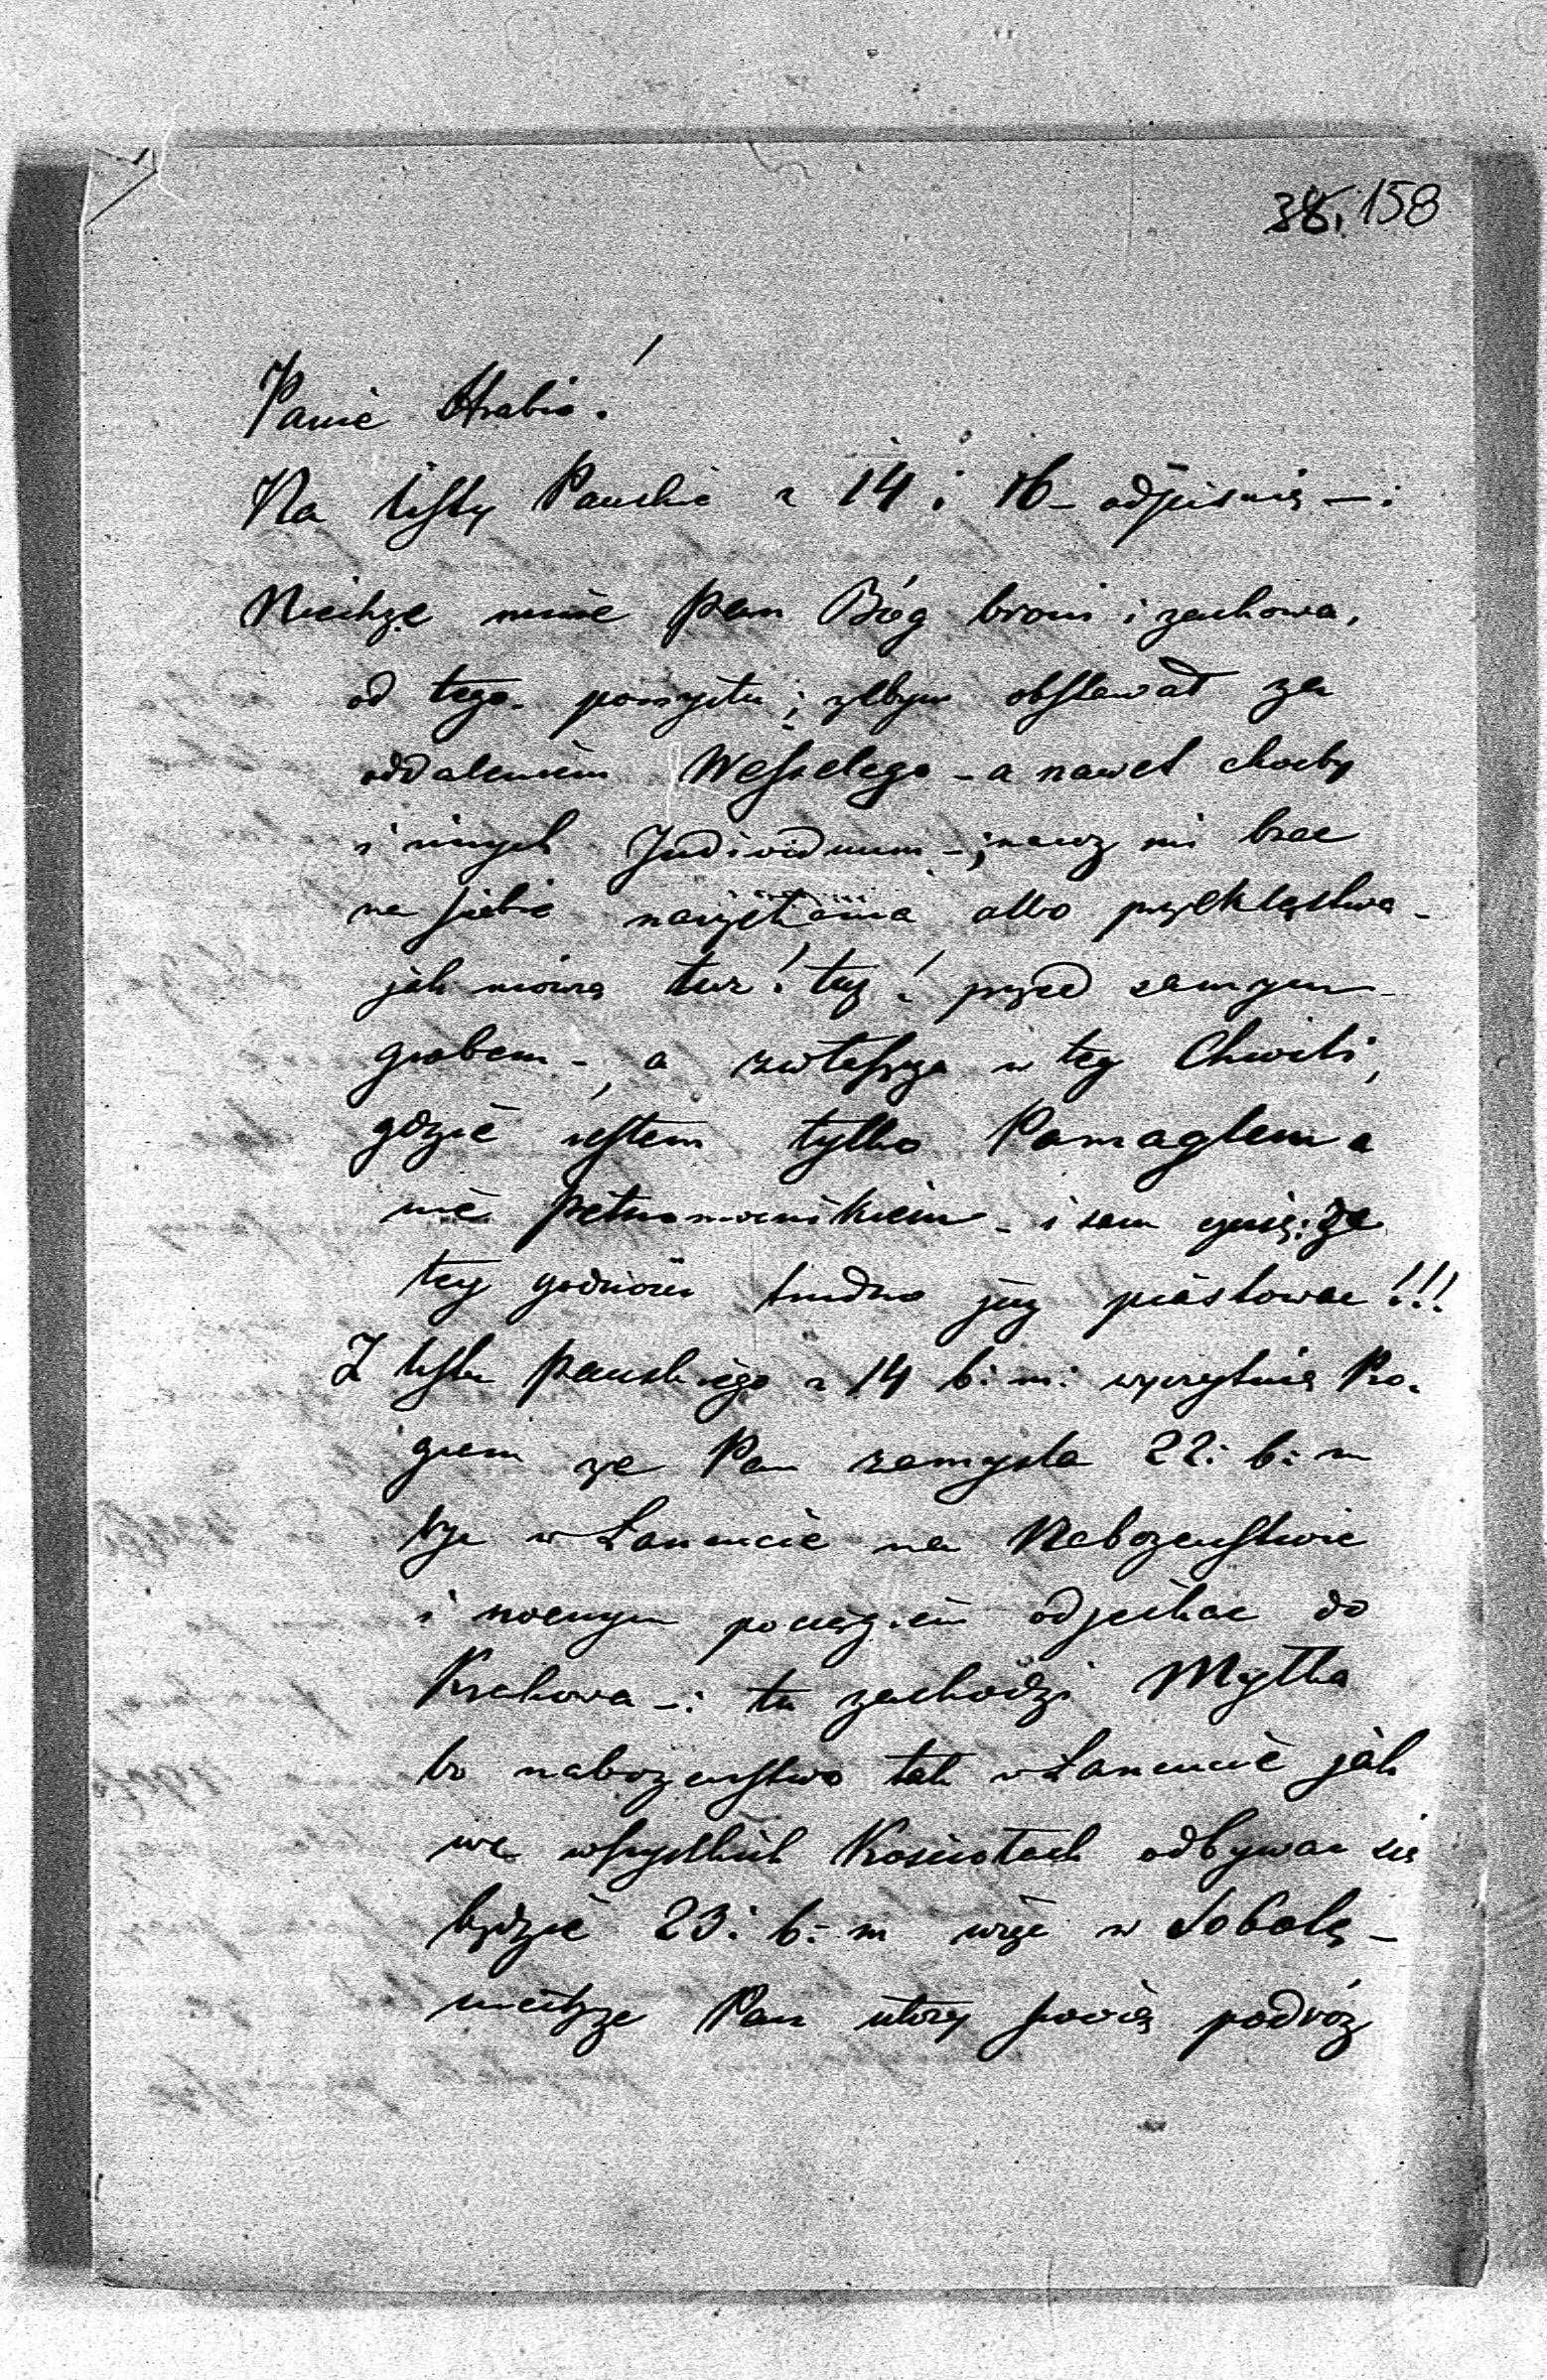 38. 158
Panie Hrabio!
Na listy Panskie z 14 i 16 – odpisuię –:
Niechże mnie Pan Bóg broni i zachowa,
od tego pomysłu; żebym obstawał za
oddaleniem Wesselego – a nawet choćby
i innych Individuum –; brac
na siebie narzekania albo przeklęstwa –
jak mówią tuz! tuz! przed samym
grobem –, a zwłaszcza w tey Chwili,
gdzie iestem tylko Pomaglem a
nie pełnomocnikiem – i sam czuię; że
tey godności trudno już piastować!!!
Z listu Panskiego z 14 b: m: wyczytuię
że Pan zamyśla 22: b: m
być w Łancucie na Nabożenstwie
i nocnym pociągiem odjechac do
Krakowa –: tu zachodzi Myłka
bo nabożenstwo tak w Łancucie jak
we wszystkich Kościołach odbywac się
będzie 23: b: m więc w Sobotę –
niechże Pan swoią podróż